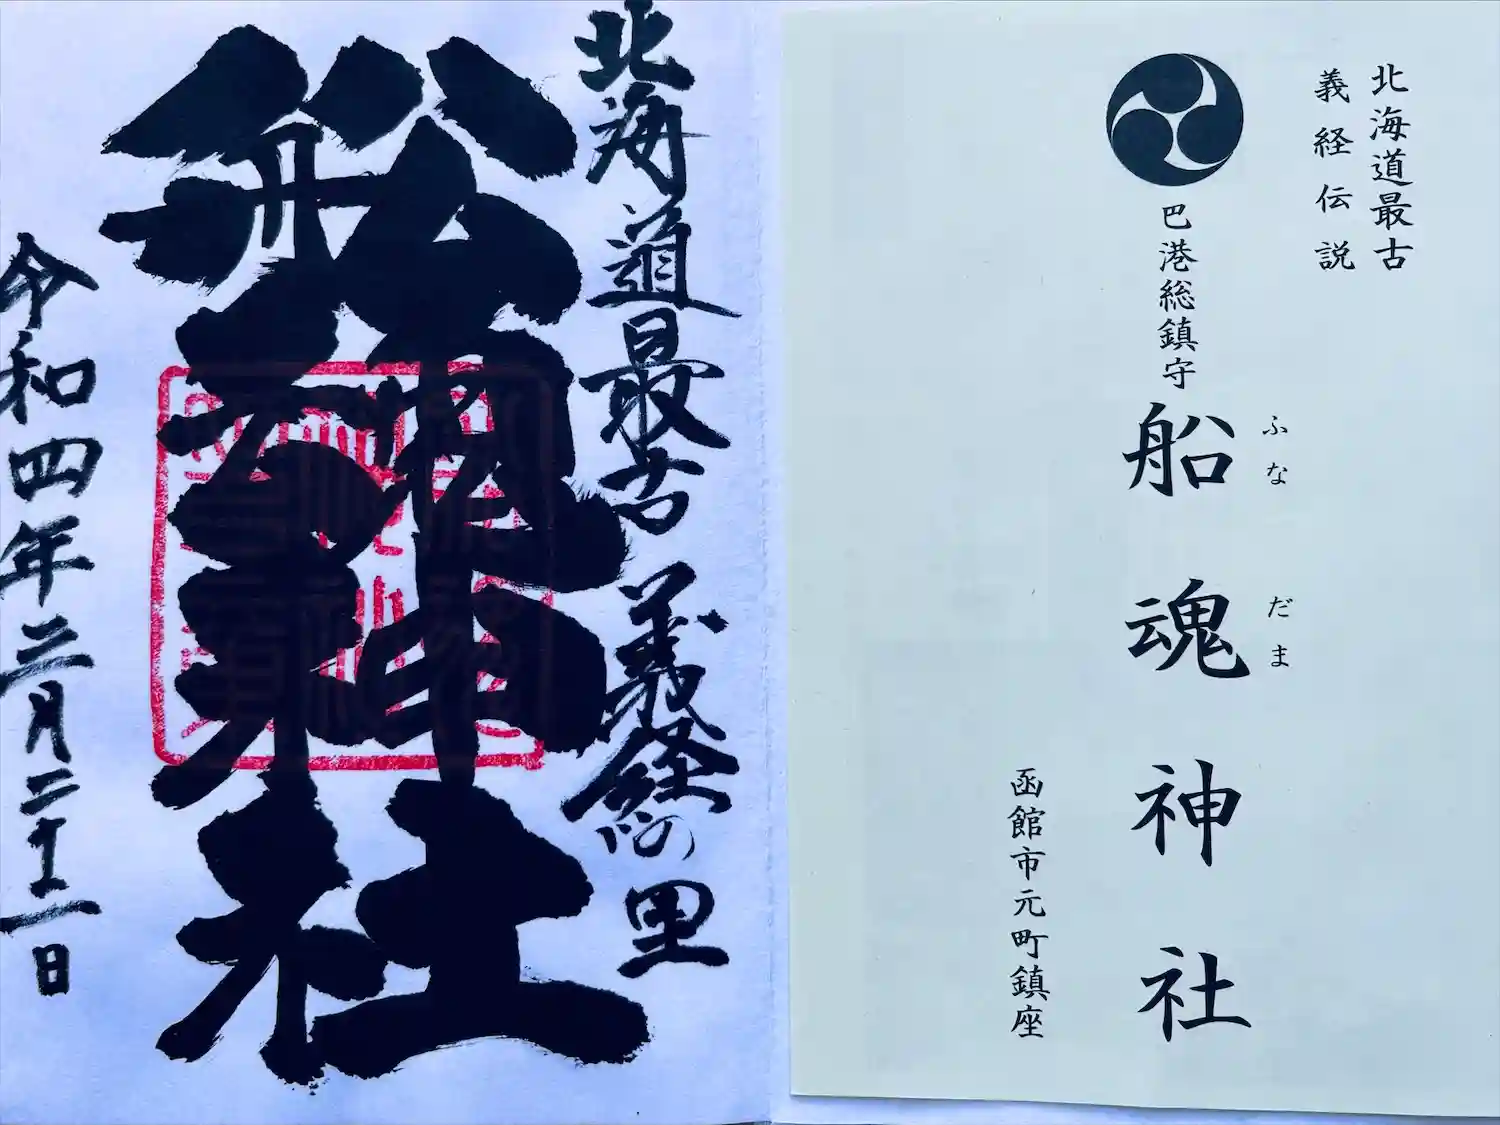 北海道最古
義経伝説
巴港総鎮守
船魂神社
ふなだま
函館市元町鎮座
北海道最古 義経の里
船魂神社
令和四年三月二十一日